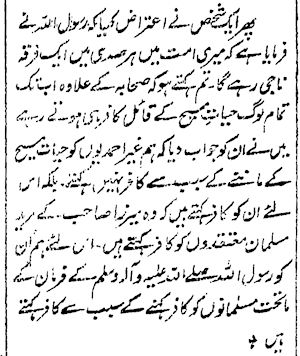 پھر ایک شخص نے اعتراض کر دیا کہ رسول اللہ نے
فرمایا ہے کہ میری امت میں ہر صدی میں ایک فرقہ
ناجی رہے گا۔ تم کہتے ہو کہ صحابہ کے علاوہ اب تک
تمام لوگ حیات مسیح کے قائل کافر ہی ہوتے رہے
میں نے ان کو جواب دیا کہ ہم غیر احمدیوں کو حیات مسیح
کے ماننے کے سبب سے کافر نہیں کہتے۔ بلکہ اس
لئے ان کو کافر کہتے ہیں کہ وہ میرزا صاحب کے
مسلمان معتقدوں کو کافر کہتے ہیں۔ اس لئے ہم ان
کو رسول اللہ صلے اللہ علیہ وآلہ وسلم کے فرمان کے
ماتحت مسلمانوں کو کافر کہنے کے سبب سے کافر کہتے
ہیں